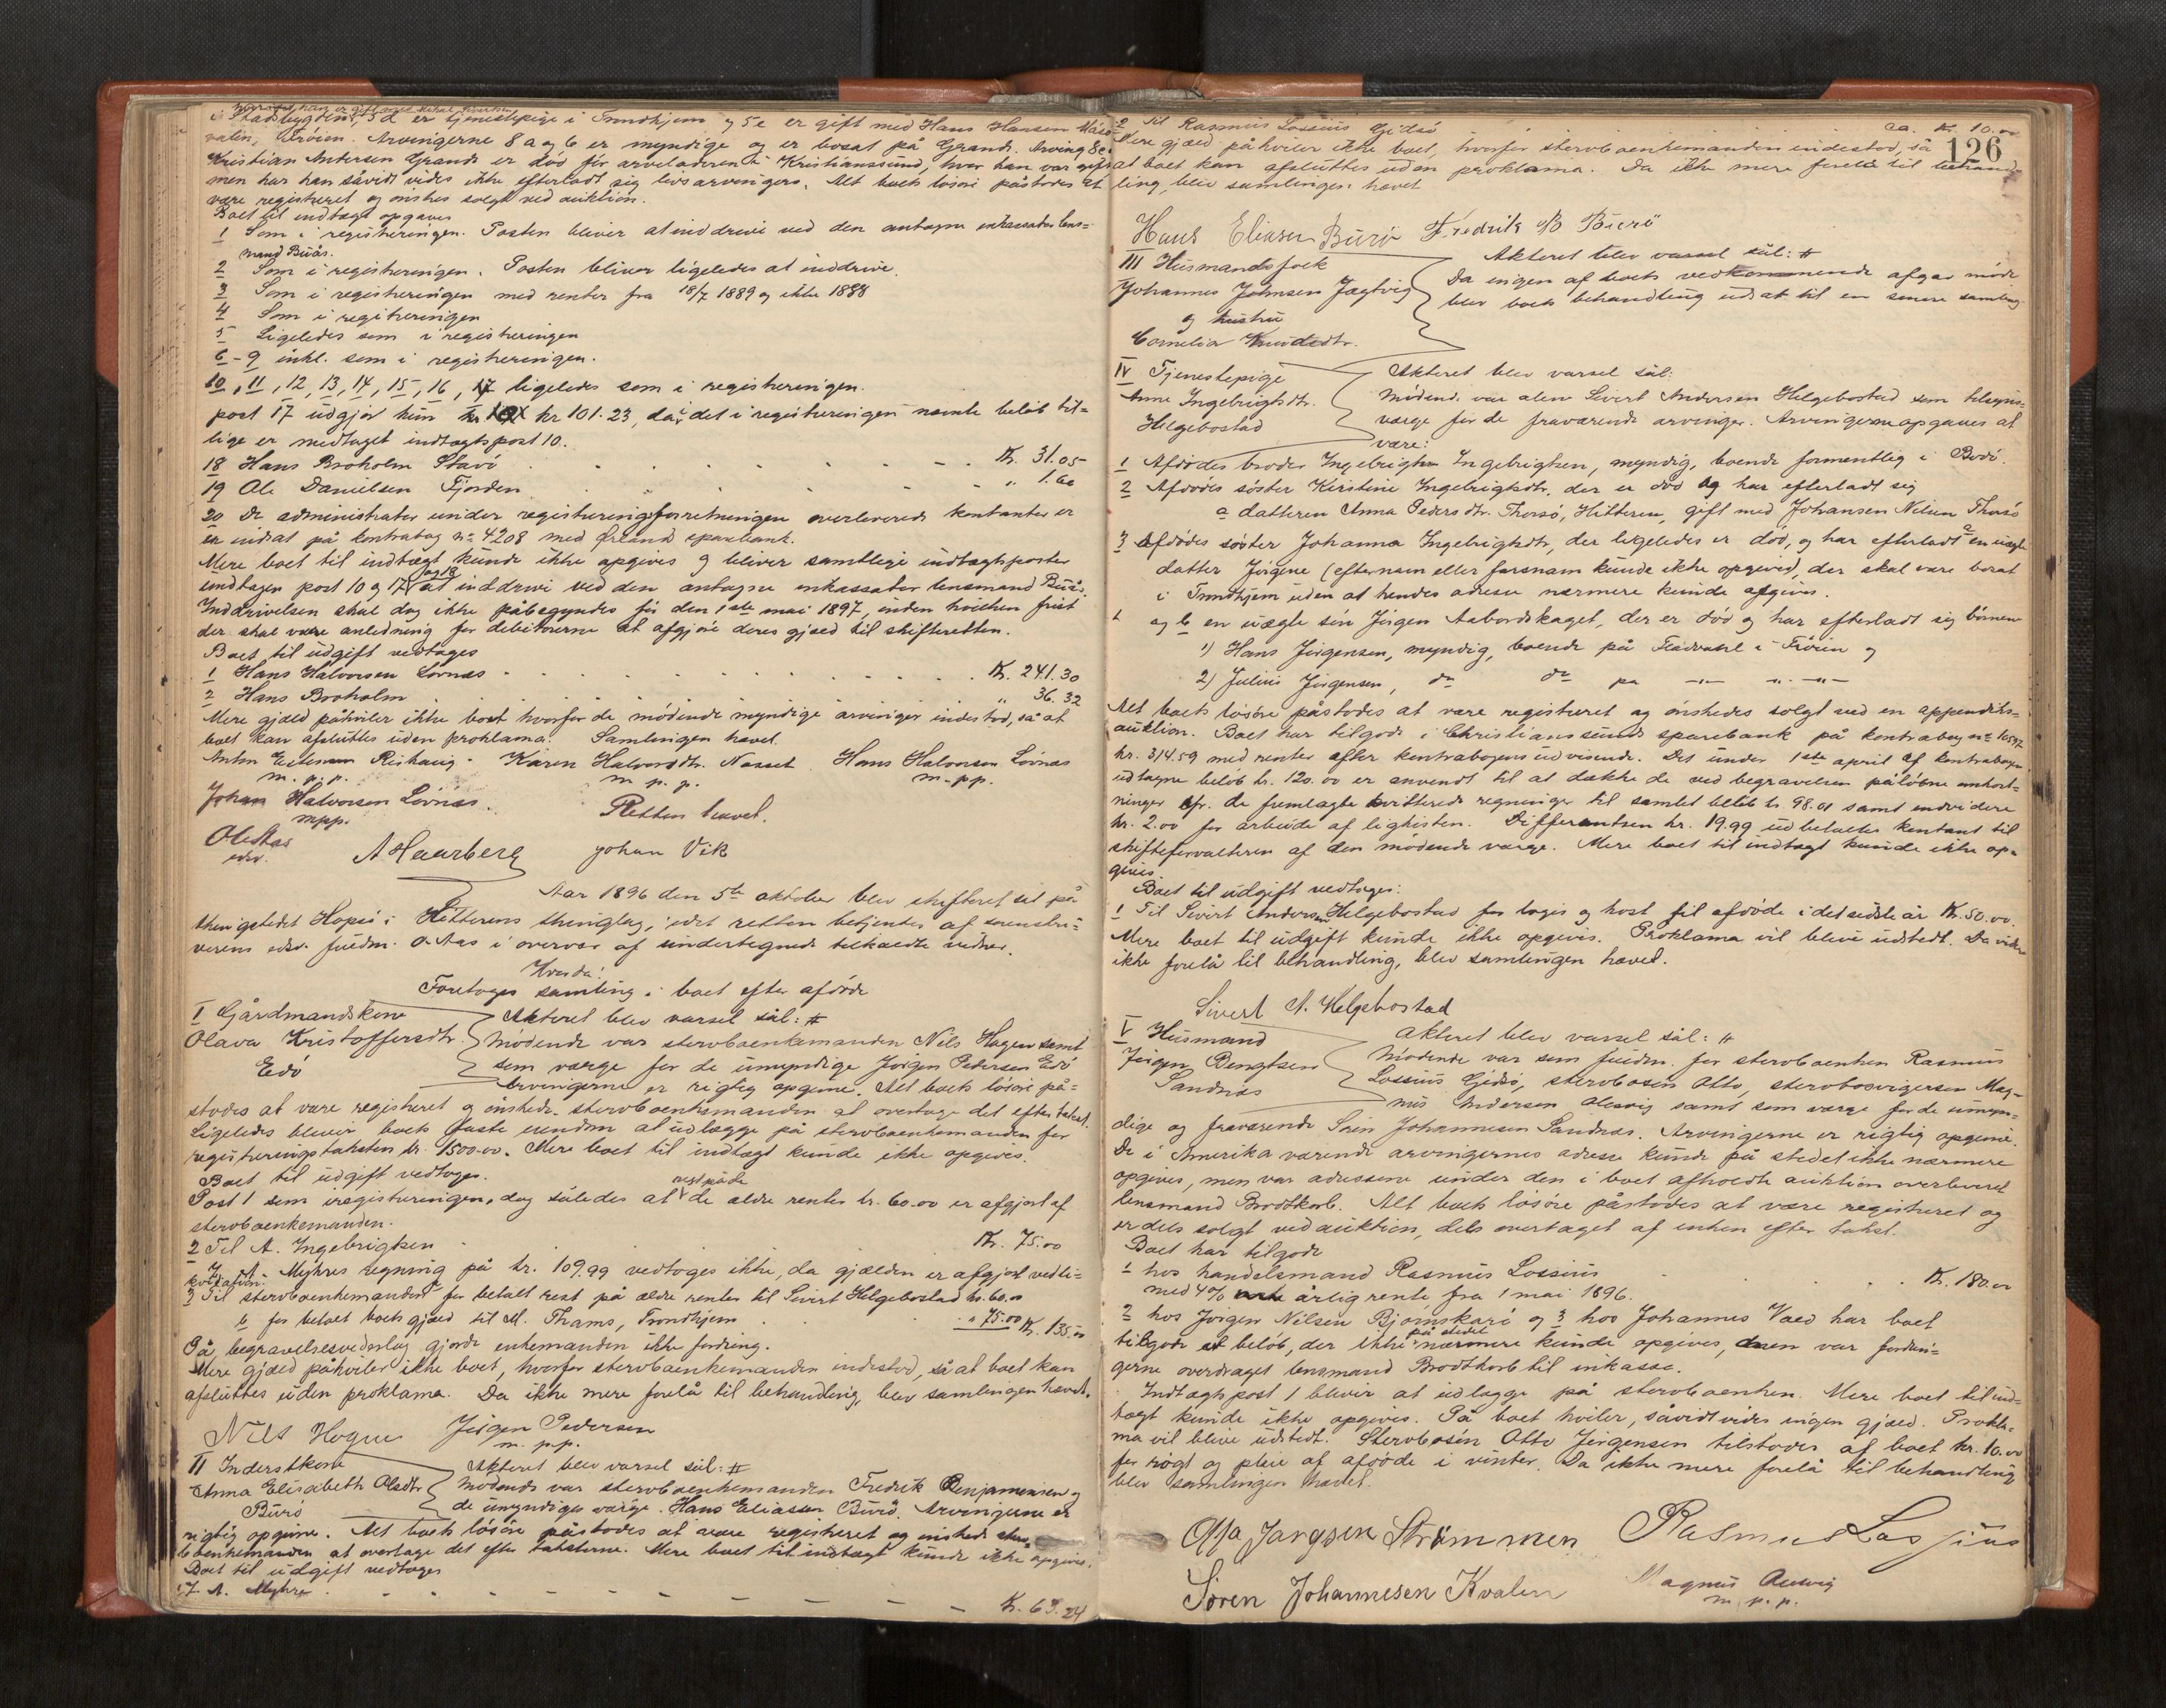 i Stadsbygden, 5 d er tjenestepige i Trondhjem og 5 e er gift med Hans Hansen
valen, Frøien. Arvingerne 8 a og b er myndige og er bosat på Grande. Arving 8 c
Kristian Antersen Grande er død før arveladeren i Kristianssund, hvor han var gift
men har han såvidt vides ikke efterladt sig livsarvinger. Alt boets løsøre påstodes at
være registreret og ønskes solgt ved auktion.
Boet til indtægt opgaves
1 Som i registreringen. Posten bliver at inddrive ved den antagne inkassator lens=
mand Buås.
2 Som i registreringen. Posten bliver ligeledes at inddrive.
3 Som i registreringen med renter fra 18/7 1889 og ikke 1888
4 Som i registreringen
5 Ligeledes som i registreringen
6-9 inkl. som i registreringen.
10, 11, 12, 13, 14, 15, 16, 17 ligeledes som i registreringen.
post 17 udgjør kun kr 101.23, da det i registreringen nævnte beløb til=
lige er medtaget indtægtspost 10.
18 Hans Broholm Stavø . . . . Kr. 31.05
19 Ole Danielsen Fjorden . . . . " 1.60
20 De administrator under registreringsforretningen overleverede kontanter er
er indsat på kontrabog nr 4208 med Ørland sparebank.
Mere boet til indtægt kunde ikke opgives og bliver samtlige indtægtsposter
undtagen post 10 og 17 og 18 at inddrive ved den antagne inkassator lensmand Buås.
Inddrivelsen skal dog ikke påbegyndes før den 1ste mai 1897, inden hvilken frist
der skal være anledning for debitorerne at afgjøre deres gjæld til skifteretten.
Boet til udgift vedtoges
1 Hans Halvorsen Lövnæs . . . . Kr. 241.30
2 Hans Broholm . . . . " 36.32
Mere gjæld påhviler ikke boet hvorfor de mødende myndige arvinger indestod, så at
boet kan afsluttes uden proklama. Samlingen hævet.
Anton Rishaug. Karen Halvorsdtr. Nasset Hans Halvorsen Lövnæs
m. p. p. m. p. p. m. p.p.
Johan Halvorsen Lövnæs. Retten hævet.
mpp.
O Aas
edsv. A Haarberg Johan Vik
Aar 1896 den 5te oktober blev skifteret sat på
thingstedet Hopsø i Hitterens thinglag, idet retten betjentes af sorenskri=
verens edsv. fuldm. O. Aas i overvær af undertegnede tilkaldte vidner.
Hvorda:
Foretoges samling i boet efter afdøde
I Gårdmandskone
Olava Kristoffersdtr.
Edö
Akteret blev varsel sål: #
Mødende var stervboenkemanden Nils Hagen samt
som værge for de umyndige Jørgen Pedersen Edö
Arvingerne er rigtig opgivne. Alt boets løsøre på=
stodes at være registreret og ønskede stervboenkemanden at overtage det efter takst.
Ligeledes bliver boets faste eiendom at udlægge på stervboenkemanden for
registreringstaksten kr. 1500.00. Mere boet til indtægt kunde ikke opgives.
Boet til udgift vedtoges.
Post 1 som i registreringen, dog således at de ældre renter kr. 60.00 er afgjort af
stervboenkemanden.
2 Til A. Ingebrigtsen . . . Kr. 75.00
J. A. Myhres regning på kr. 109.99 vedtoges ikke, da gjælden er afgjort ved li=
kvidation.
3 Til stervboenkemanden a for betalt rest på ældre renter til Sivert Helgebostad kr. 60.00
b for betalt boets gjæld til M. Thams, Trondhjem . . . " 75.00 Kr. 135.00
På begravelsesvederlag gjorde enkemanden ikke fordring.
Mere gjæld påhviler ikke boet, hvorfor stervboenkemanden indestod, så at boet kan
afsluttes uden proklama. Da ikke mere forelå til behandling, blev samlingen hævet.
Nils Hogne Jörgen Pedersen
m. p.p.
II Inderstkone
Anna Elisabeth Olsdtr.
Burö
Akteret blev varsel sål: #
Mødende var stervboenkemanden Fredrik Benjaminsen og
de umyndiges værge Hans Eliassen Burö. Arvingerne er
rigtig opgivne. Alt boets løsøre påstodes at være registreret og ønskede sterv=
boenkemanden at overtage det efter taksterne. Mere boet til indtægt kunde ikke opgives.
Boet til udgift vedtoges
1 J. A. Myhre . . . . Kr. 63.24
126
2 Til Rasmus Lossius Gjdsö ca. Kr. 10.00
Mere gjæld påhviler ikke boet, hvorfor stervboenkemanden indestod, så
at boet kan afsluttes uden proklama. Da ikke mere forelå til behand=
ling, blev samlingen hævet
Hans Eliasen Burö Fredrik B Buerö
III Husmandsfolk
Johannes Johnsen Jægtvig
og hustru
Cornelia Knudsdtr.
Akteret blev varsel sål: #
Da ingen af boets vedkommende afgav møde
blev boets behandling udsat til en senere samling
IV Tjenestepige
Anne Ingebrigtsdtr.
Helgebostad
Akteret blev varsel sål:
Mødende var alene Sivert Andersen Helgebostad som tilsyns=
værge for de fraværende arvinger. Arvingerne opgaves at
være:
1 Afdødes broder Ingebrigt Ingebrigtsen, myndig, boende formentlig i Bodø.
2 Afdødes søster Kirstine Ingebrigtsdtr. der er død og har efterladt sig
a datteren Anna Pedersdtr. Thorsö, Hitteren, gift med Johansen Nilsen Thorsö
3 Afdødes søster Johanna Ingebrigtsdtr, der ligeledes er død, og har efterladt a en uægte
datter Jørgine (efternavn eller farsnavn kunde ikke opgives), der skal være bosat
i Trondhjem uden at hendes adresse nærmere kunde opgives.
og b en uægte søn Jørgen Aabordskaget, der er død og har efterladt sig børnene
1) Hans Jørgensen, myndig, boende på Flatval i Frøien og
2) Julius Jørgensen, do do på -"- "- -"-
Alt boets løsøre påstodes at være registreret og ønskedes solgt ved en appendiks=
auktion. Boet har tilgode i Christianssunds sparebank på kontrabog nr 10547
kr. 314.59 med renter efter kontrabogens udvisende. Det under 1ste april af kontrabogen
udtagne beløb kr. 120.00 er anvendt til at dække de ved begravelsen påløbne omkost=
ninger cfr. de fremlagte kvitterede regninger til samlet beløb kr. 98.01 samt endvidere
kr. 2.00 for arbeide af ligkisten. Differentsen kr. 19.99 udbetaltes kontant til
skifteforvalteren af den mødende værge. Mere boet til indtægt kunde ikke op=
gives
Boet til udgift vedtoges:
1 Til Sivert Andersen Helgebostad for logis og kost til afdøde i det sidste år Kr. 50.00.
Mere boet til udgift kunde ikke opgives. Proklama vil blive udstedt. Da videre
ikke forelå til behandling, blev samlingen hævet.
Sivert A. Helgebostad
V Husmand
Jørgen Bengtsen
Sandnæs
Akteret blev varsel sål: #
Mødende var som fuldm. for stervboenken Rasmus
Lossius Gjdsö, stervbosøn Otto, stervbosvigersøn Mag=
nus Andersen Ulsvig samt som værge for de umyn=
dige og fraværende Søren Johannesen Sandnæs. Arvingerne er rigtig opgivne.
De i Amerika værende arvingernes adresse kunde på stedet ikke nærmere
opgives, men var adresserne under den i boet afholdte auktion overleveret
lensmand Brodtkorb. Alt boets løsøre påstodes at være registreret og
er dels solgt ved auktion, dels overtaget af enken efter takst.
Boet har tilgode
1 hos handelsmand Rasmus Lossius . . . Kr. 180.00
med 4% årlig rente fra 1 mai 1896.
2 hos Jørgen Nilsen Bjørnskari og 3 hos Johannes Vaed har boet
tilgode et beløb, der ikke på stedet nærmere kunde opgives, men var fordrin=
gerne overdraget lensmand Brodtkorb til inkasso.
Indtægtspost 1 bliver at udlægge på stervboenken. Mere boet til ind=
tægt kunde ikke opgives. På boet hviler, såvidt vides ingen gjæld. Prokla=
ma vil blive udstedt. Stervbosøn Otto Jørgensen tilstodes af boet kr. 10.00
for røgt og pleie af afdøde i vinter. Da ikke mere forelå til behandling
blev samlingen hævet.
Otto Jørgsen Strømmen Rasmus Lossius
Søren Johannesen Kvalen Magnus Ulsvig
m. p. p.